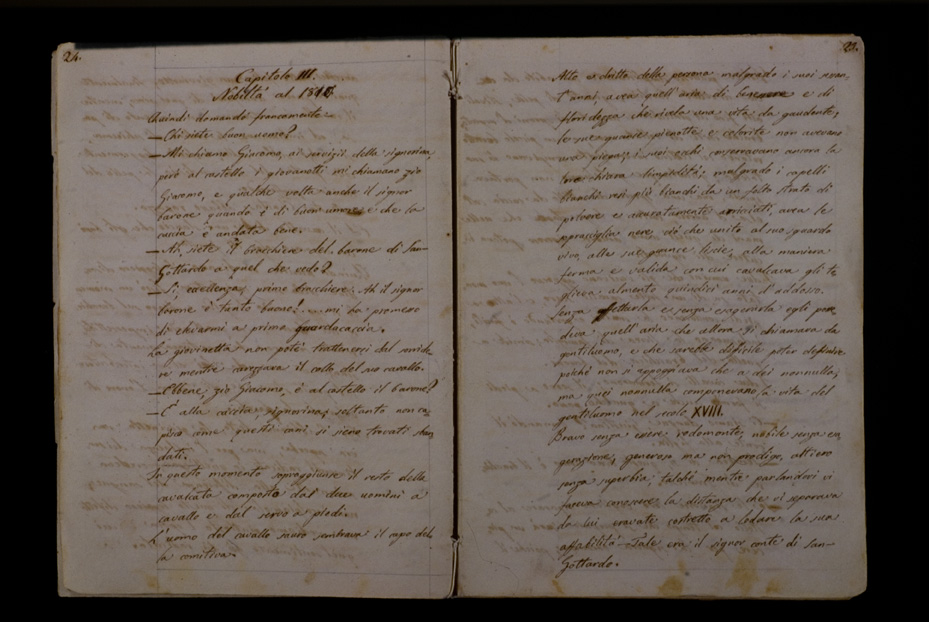 24.
Capitolo III.
Nobiltà al 1810.
Quindi domandò francamente
— Chi siete buon uomo?
— Mi chiamo Giacomo, ai servizii della signorina,
però al castello i giovanotti mi chiamano zio
Giacomo, e qualche volta anche il signor
barone quando è di buon umore e che la
caccia è andata bene.
— Ah, siete il bracchiere del barone di San-
Gottardo a quel che vedo?
— Si, eccellenza, primo bracchiere. Ah il signor
barone è tanto buono!... mi ha promesso
di chiamarmi a primo guardacaccia.
La giovinetta non potè trattenersi dal sorride
re mentre carezzava il collo del suo cavallo.
— Ebbene, zio Giacomo, è al castello il barone?
— È alla caccia, signorina; soltanto non ca
pisco come questi cani si sieno trovati sban
dati.
In questo momento sopraggiunse il resto della
cavalcata composto dai due uomini a
cavallo e del servo a piedi.
L'uomo del cavallo sauro sembrava il capo del
la comitiva.
Alto e dritto della persona malgrado i suoi
anni, avea quell'aria di benessere e di
floridezza che rivela una vita da gaudente;
le sue guancie pienotte e colorite non aveano
una piega; i suoi occhi conservavano ancora la
loro chiara limpidità; malgrado i capelli
bianchi resi più bianchi da un folto strato di
polvere e accuratamente arricciati, avea le
sopracciglia nere ciò che unito al suo sguardo
vivo, alle sue guance liscie, alla maniera
ferma e valida con cui cavalcava gli to
glieva almeno quindici anni d'addosso.
Senza affettarla e senza esagerarla egli pos
deva quell'aria che allora si chiamava da
gentiluomo, e che sarebbe difficile poter definire
poichè non si appoggiava che a dei nonnulla;
ma quei nonnulla componevano la vita del
gentiluomo nel secolo XVIII.
Bravo senza essere rodomonte; nobile senza esa
gerazione, generoso ma non prodigo, altiero
senza superbia; talchè mentre parlandovi vi
facea conoscere la distanza che vi separava
da lui eravate costretto a lodare la sua
affabilità — Tale era il signor conte di San-
Gottardo.